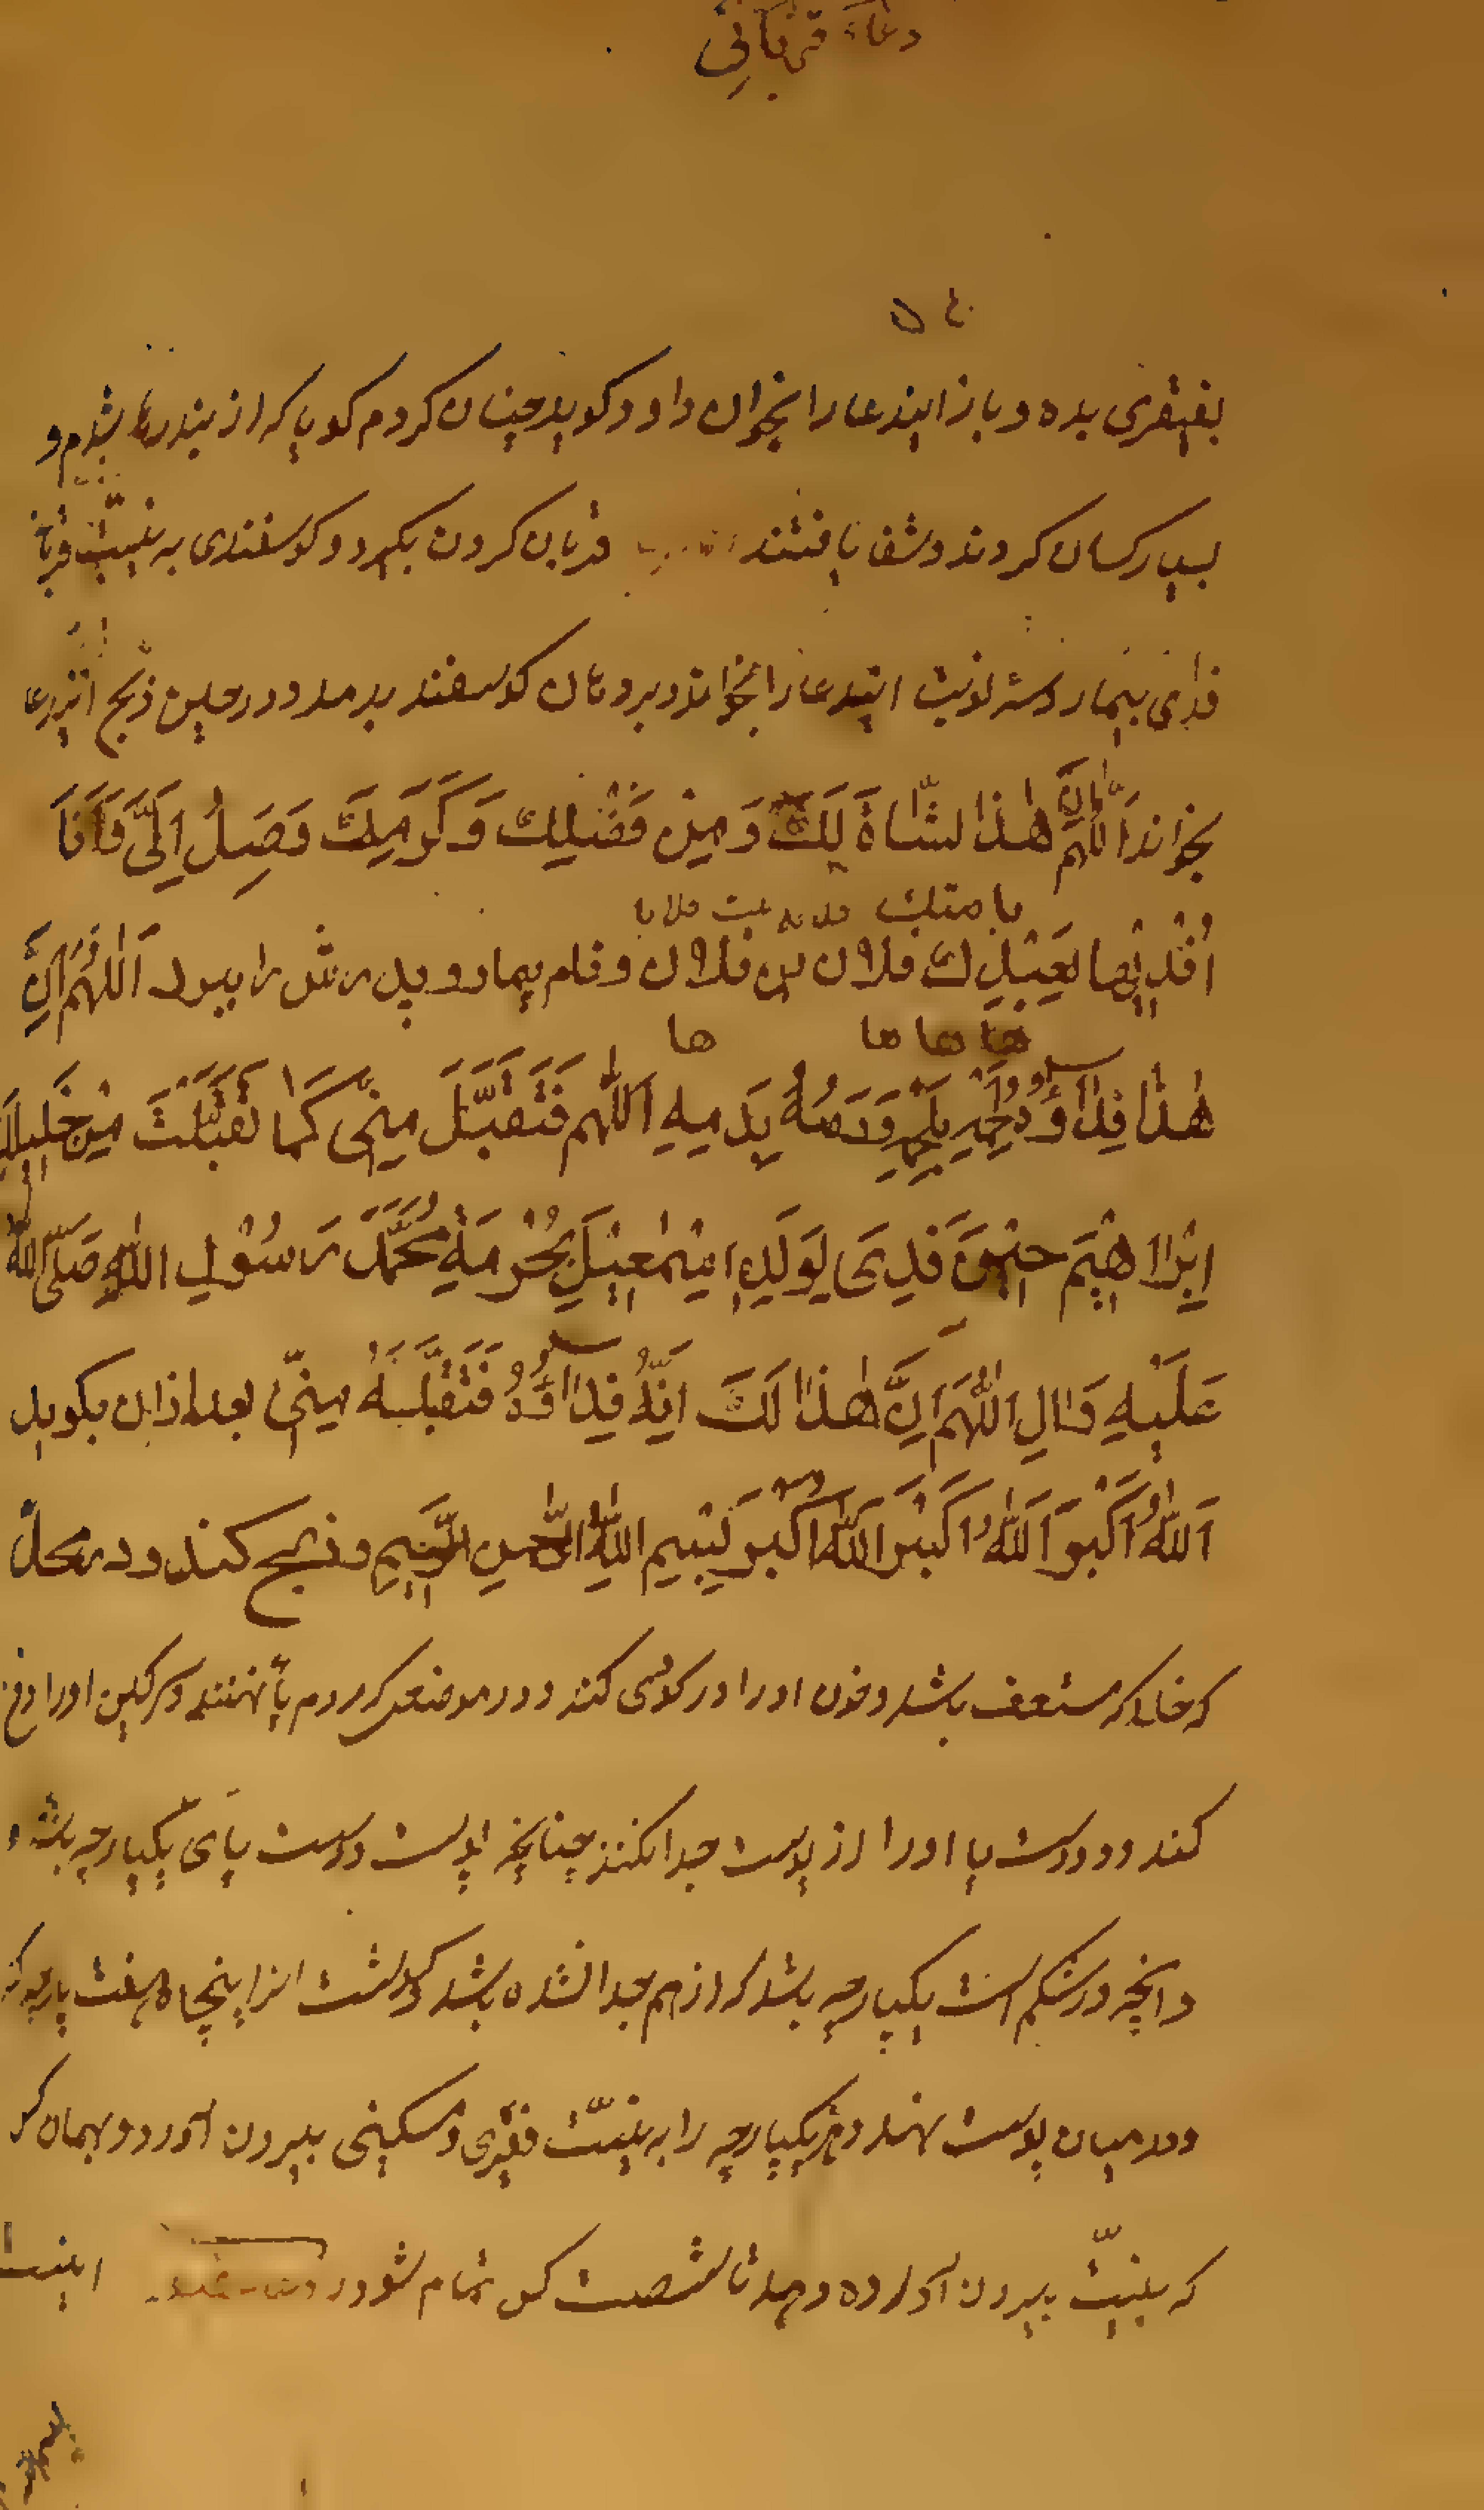 دعاء قربانی
بفیقری بده و باز ایندعا را بخوان داود کوید چنان کردم کویا که از بند رها شدم و
بسیار کسان کردند و شفا یافتند قربان کردن بکیرد و کوسفندی به نییّت قربانی
فدای بیمار و سه نوبت ایندعا را بخواند و بر دهان کوسفند بدمد و در حین ذبح ایندعا
بخواند اَللّٰهُمَّ اِنَّ هٰذا لشّاةَ لَكَ وَ مِنْ فَضْلِكَ وَ كَرَمِكَ وَصِلُ اِلَیَّ وَ اَنَا
یا متك فلانه بنت فلان یا
اُفْدِیْها بِعَبْدِكَ فلان بن فلان و نام بیمار و پدرش را ببرد اَللّٰهُمَّ اِنَّ
ها ها ها ها
هٰذا فِداؤُهُ لَحْمُهُ بِلَحْمِهِ وَ دَمُهُ بِدَمِهِ اَللّٰهم فَتَقَبَّلَ مِنّی كَمٰا تَقَبَّلْتَ مِنْ خَلِیلِكَ
اِبْراهِیْمَ حِیْنَ فَدِیَ لِوَلَدِهِ اِسْمٰعِیْلَ بِحُرْمَةِ مُحَمَّدَ رَسُوْلِ اللّٰهِ صَلّی اللّٰهُ
عَلَیْهِ وَاٰلِ اللّٰهُمَ اِنَّ هٰذا لَكَ اِنَّهُ فِداؤُهُ فَتَقَبَّلَهُ مِنّی بعد از ان بکوید
اَللّٰهُ اَكْبَر اَللّٰهُ اَكْبَر اَللّٰهُ اَكْبَر بِسْمِ اللّٰهِ الرَّحمنِ الرَّحِیمِ و ذبح کند و در محلّ
که مسقف باشد و خون او را در کوی کند و در موضعی که مردم پا ننهند و سرکین او را دفن
کند و دو دست پا او را از پوست جدا نکند چنانچه پوست و دست پای یکپارچه باشد و
و انچه در شکم است یکپارچه باشد که از هم جدا نشده باشد و کوشت انرا پنجاه هفت پارچه کند
و در میان پوست نهد و هر یکپارچه را به نییّت فقیری و مسکینی بیرون آورد و بهمان کس
که بنییّت بیرون آورده دهد تا شصت کس تمام شود اینست